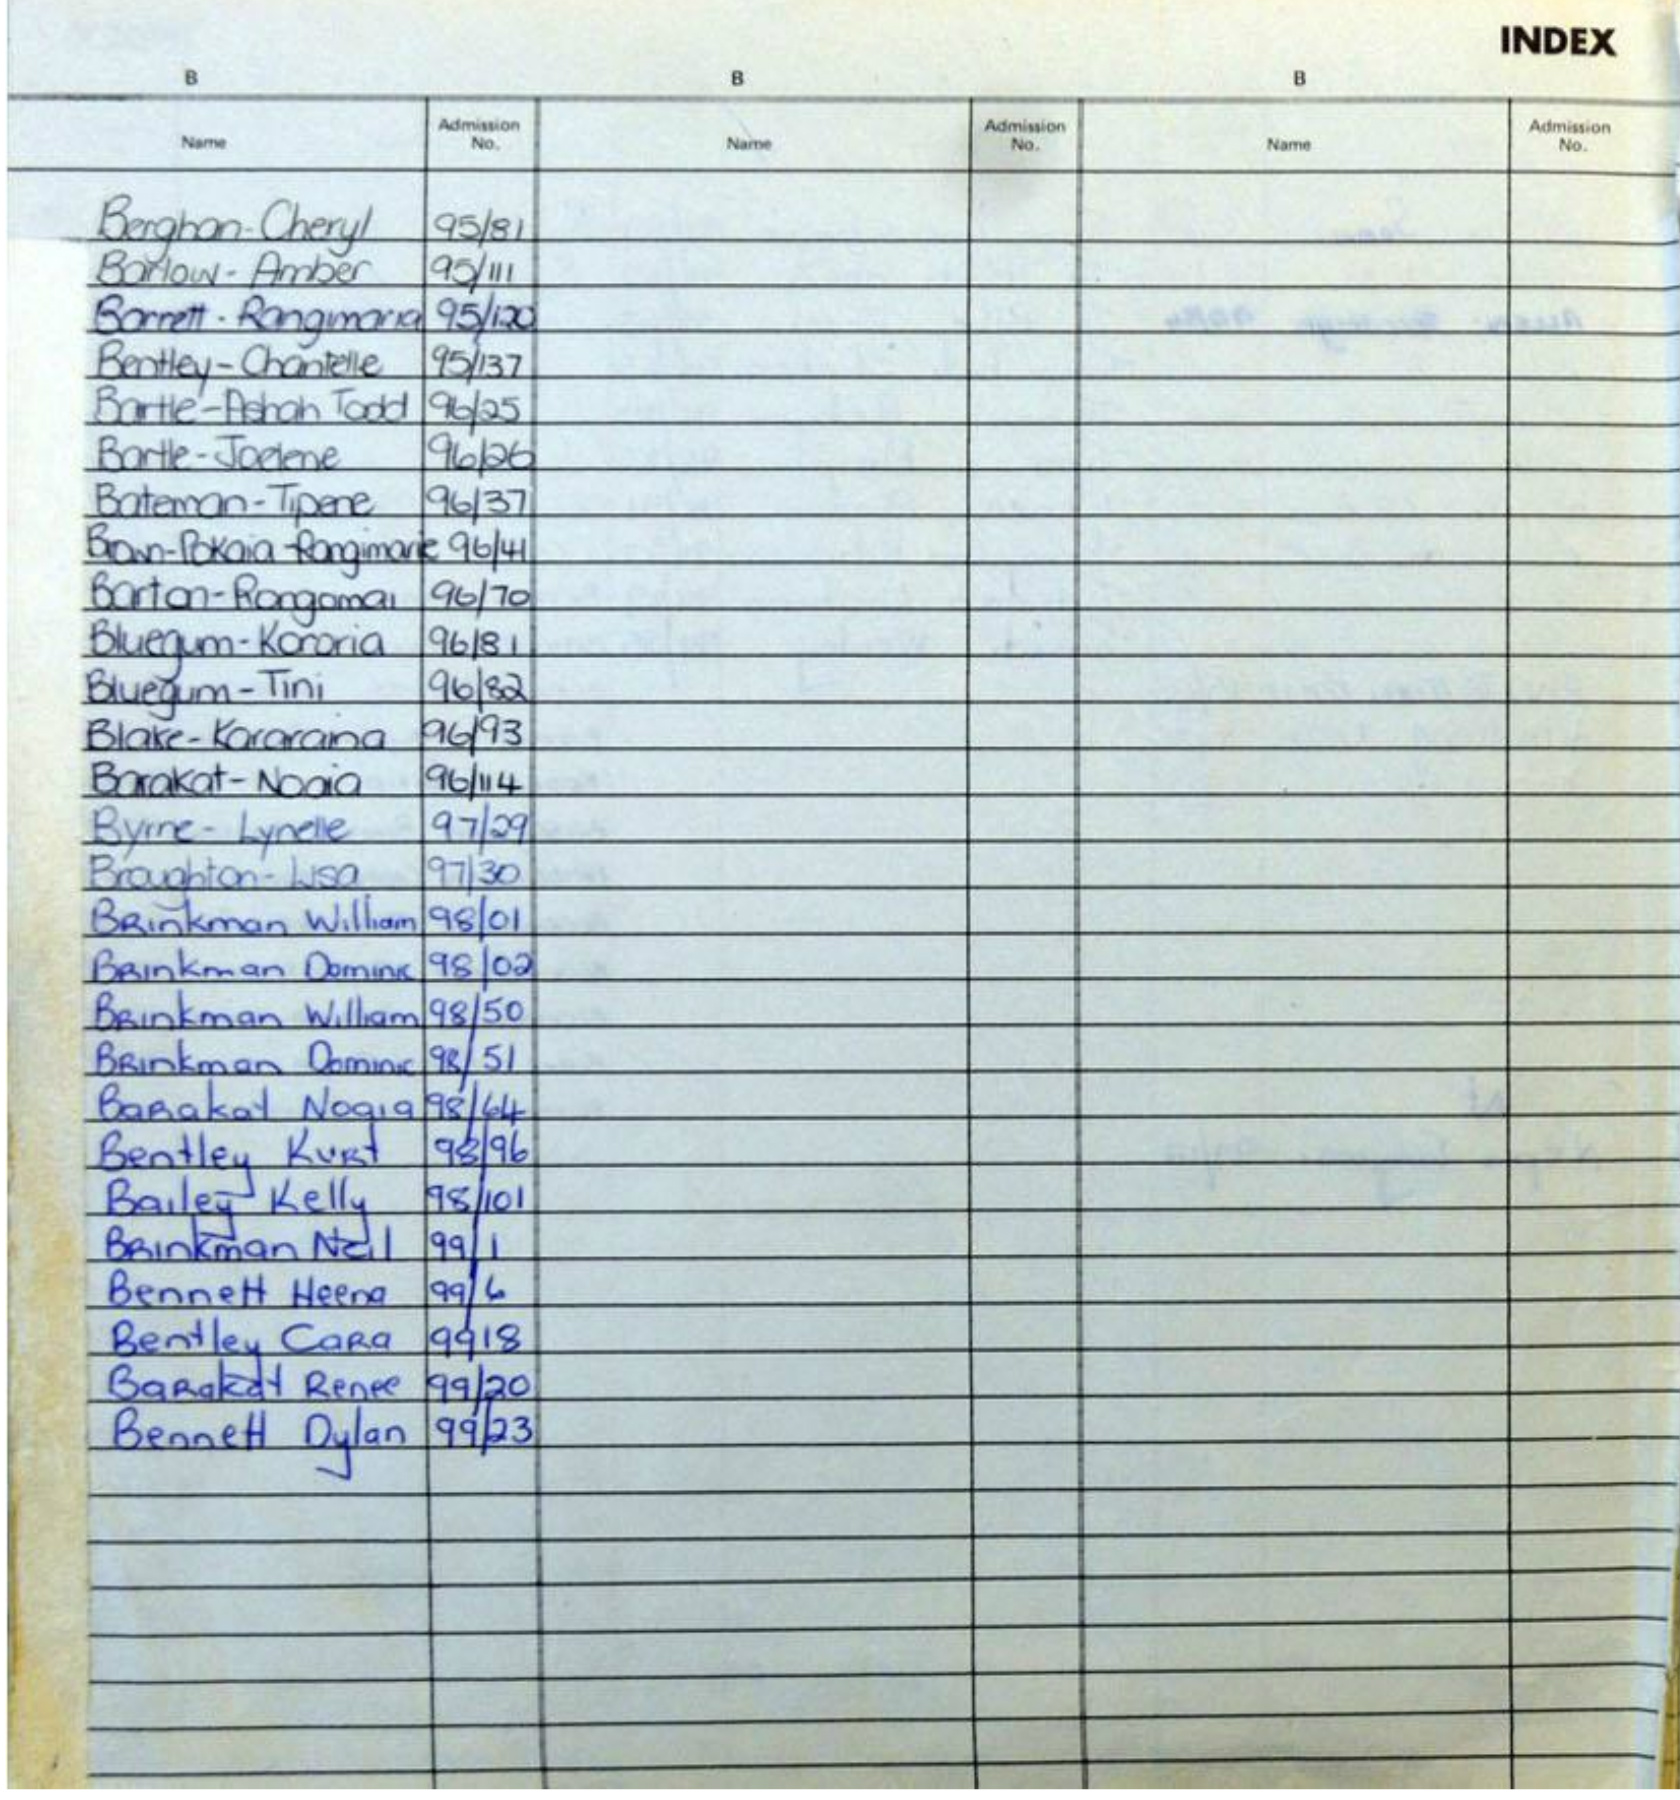 INDEX
B B B
Name Admission No. Name Admission No. Name Admission No.
Berghan-Cheryl 95/81
Barlow-Amber 95/111
Barrett-Rangimaria 95/120
Bentley-Chantelle 95/137
Bartle-Ashah Todd 96/25
Bartle-Joelene 96/26
Bateman-Tipene 96/37
Brown-Pokaia Rangimarie 96/41
Barton-Rangomai 96/70
Bluegum-Kararia 96/81
Bluegum-Tini 96/82
Blake-Kararaina 96/93
Barakat-Nogia 96/114
Byrne-Lynelle 97/29
Broughton-Lisa 97/30
Brinkman William 98/01
Brinkman Dominic 98/02
Brinkman William 98/50
Brinkman Dominic 98/51
Barakat Nogia 98/64
Bentley Kurt 98/96
Bailey Kelly 98/101
Brinkman Neil 99/1
Bennett Heena 99/6
Bentley Cara 99/18
Barakat Renee 99/20
Bennett Dylan 99/23